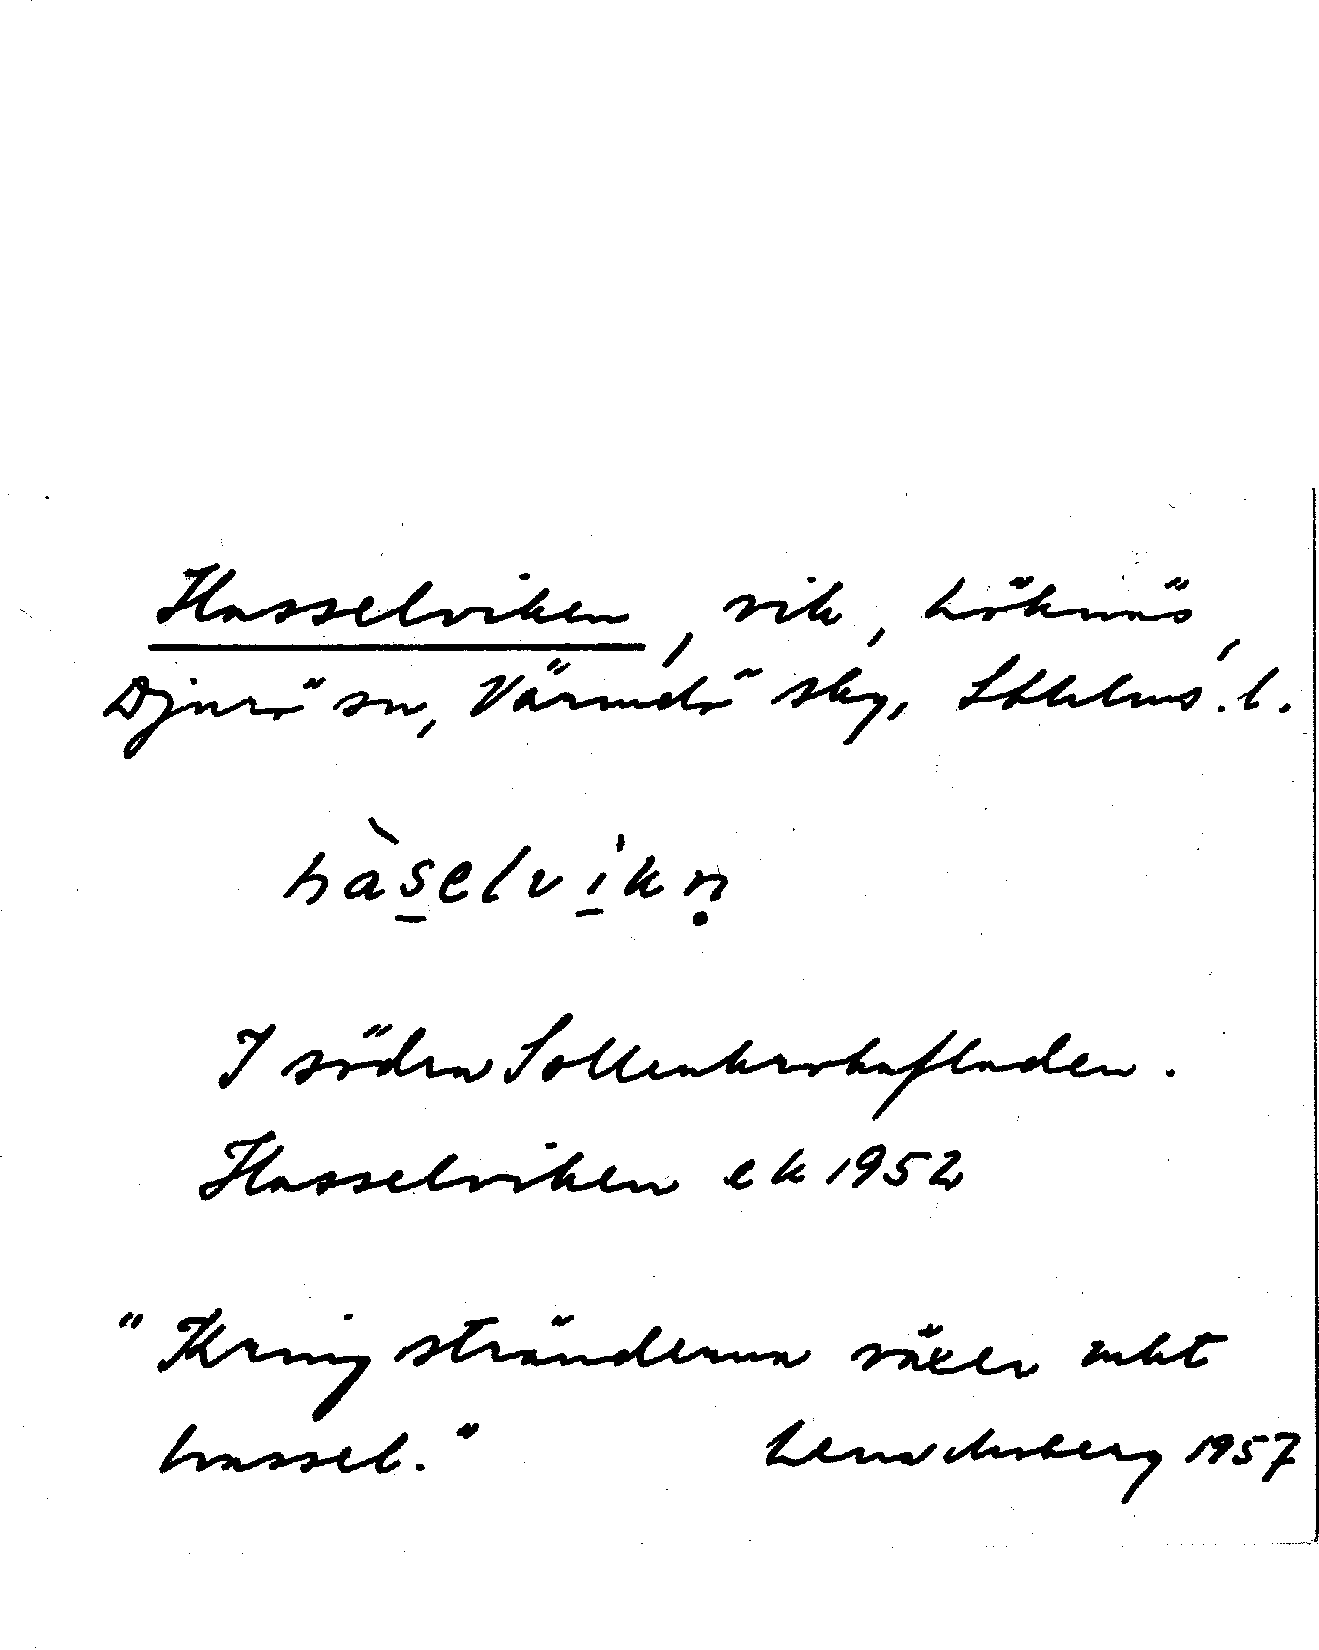 Hasselviken, vik, Löknäs,
Djurö sn, Värmdö skg, Sthlms l.
hàs̲elvi̲kṇ
I södra Sollenkrokafladen.
Hasselviken ek 1952
"Kring stränderna växer mkt
hassel." Lena 1957